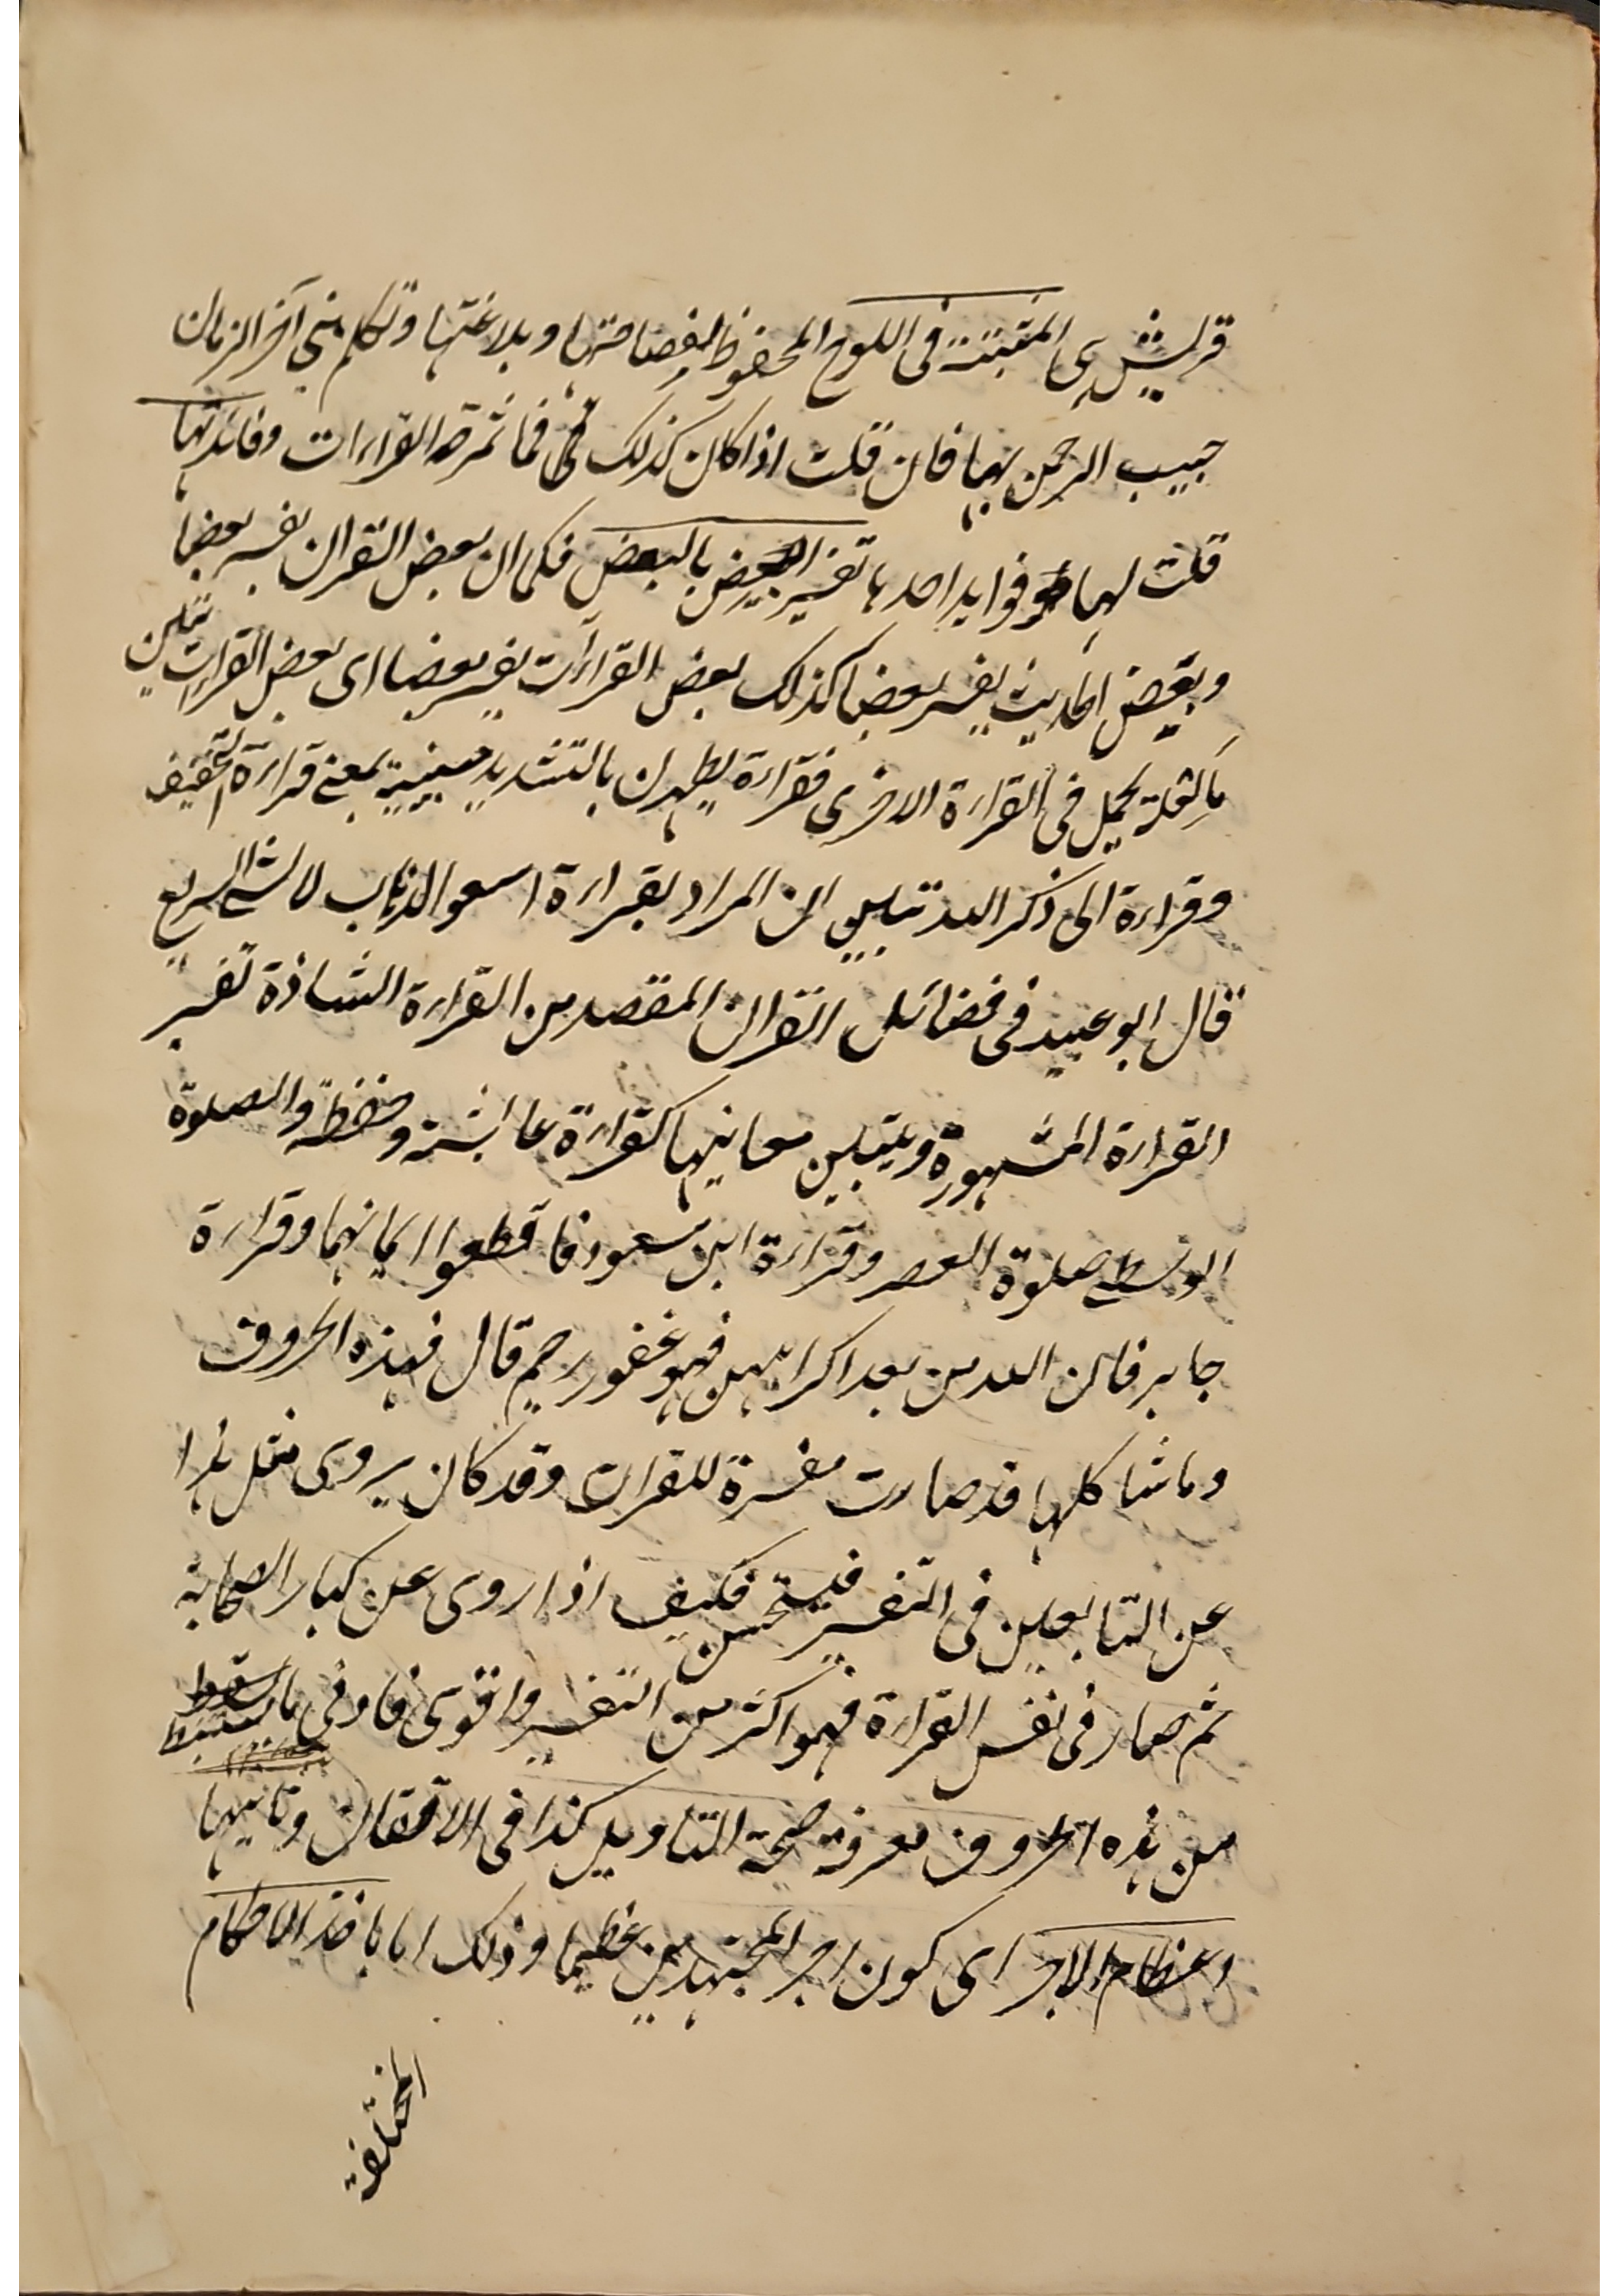 قريش هى المثبتة فى اللوح المحفوظ لفصاحتها وبلاغتها وتكلم نبى آخر الزمان
حبيب الرحمن بها فان قلت اذا كان كذلك فما ثمرة القراءات وفائدتها
قلت لها فوايد احدها تفسير البعض بالبعض فكما ان بعض القران يفسر بعضا
وبعض الحديث يفسر بعضا كذلك بعض القراءات يفسر بعضا اى بعض القراءات تبين
ما لعله يحمل فى القراءة الاخرى فقراءة يطهرن بالتشديد مبينية بمعنى قراءة التخفيف
وقراءة الى ذكر الله تبين ان المراد بقراءة اسعوا الذهاب لا المشى السريع
قال ابو عبيد فى فضائل القران المقصد من القراءة الشاذة تفسير
القراءة المشهورة وتبيين معانيها كقراءة عائشة وحفظة والصلوة
الوسطى صلوة العصر وقراءة ابن مسعود فاقطعوا ايمانهما وقراءة
جابر فان الله من بعد اكراههن فهو غفور رحيم قال فهذه الحروف
وما شاكلها قد صارت مفسرة للقران وقد كان يروى مثل هذا
عن التابعين فى التفسير فيستحسن فكيف اذا روى عن كبار الصحابة
ثم صار فى نفس القراءة فهو اكثر من التفسير واقوى فادنى ما يستنبط
من هذه الحروف معرفة صحة التاويل كذا فى الاتقان وثانيها
اعظام الاجر اى كون اجر المجتهدين عظيما وذلك اما باخذ الاحكام
المختلفة